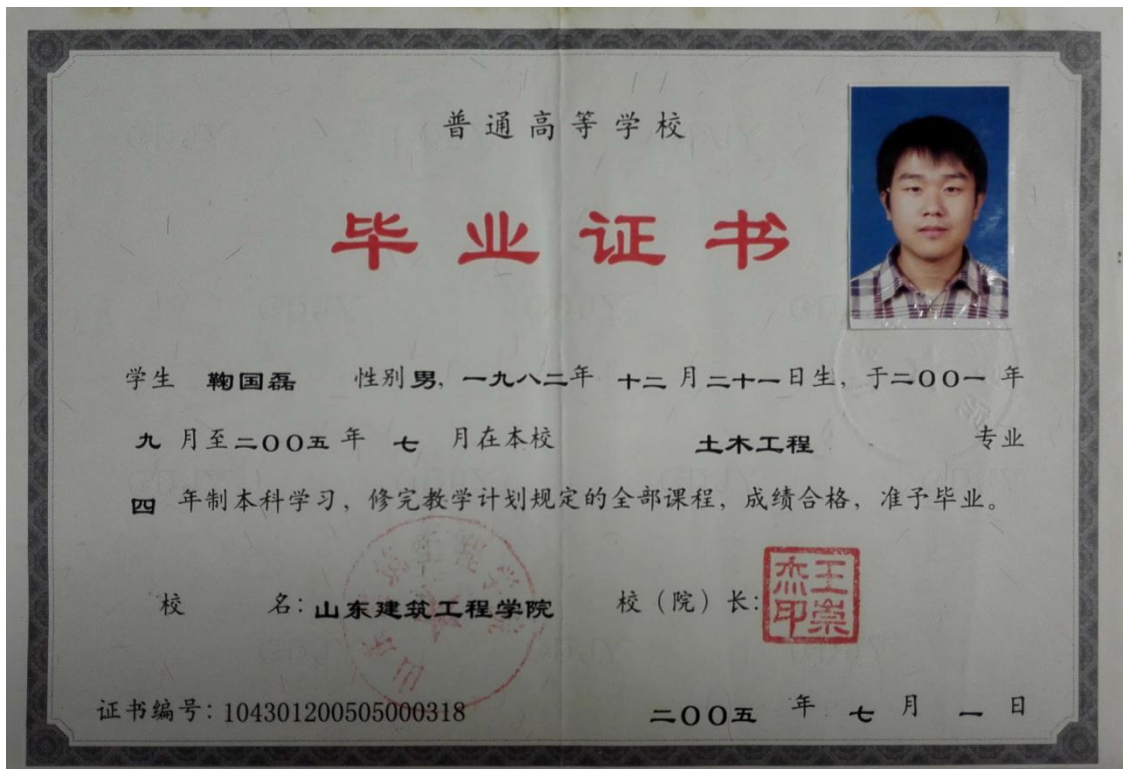 普通高等学校
毕业证书
学生 鞠国磊 性别男，一九八二年 十二月二十一日生，于二〇〇一 年
九 月至二〇〇五 年 七 月在本校 土木工程 专业
四 年制本科学习，修完教学计划规定的全部课程，成绩合格，准予毕业。
校 名：山东建筑工程学院 校（院）长：王崇杰印
证书编号：104301200505000318 二〇〇五 年 七 月 一 日